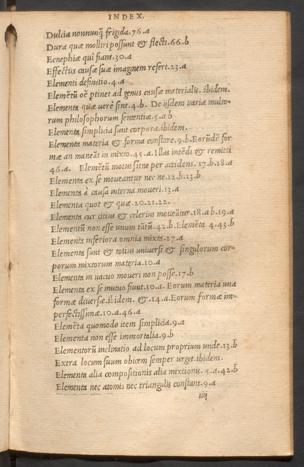 INDEX.
Dulcia nonnunq̃ frigida.76.a
Dura quæ molliri possunt & flecti.66.b
Ecnephiæ qui fiant.30.a
Effectus causæ suæ imaginem refert.23.a
Elementi definitio.4.a
Elemẽtũ oẽ ptinet ad genus causæ materialis. ibidem.
Elementa quæ verè sint.4.b. De iisdem variæ multorum
rum philosophorum sententiæ.5.a b
Elementa simplicia sunt corpora.ibidem.
Elementa materia & forma constare.9.b.Eorũdẽ for-
mæ an maneãt in mixto.45.a.Illas intẽdi & remitti
46.a. Elemẽtũ motus sitne per accidens.17.b.18.a
Elementa ex se moueantur nec ne.12.b.13.b
Elementa à causa interna moueri.13.a
Elementa quot & quæ.20.21.22.
Elementa cur citius & celerius moueãtur.18.a b.19.a
Elementũ non esse unum tãtũ.42.b.Elemẽta 4.43.b
Elementa inferiora omnia mixta.27.a
Elementa sunt & totius universi & singulorum cor-
porum mixtorum materia.10.a
Elementa in vacuo moueri non posse.17.b
Elementa ex se mutuo fiunt.10.a. Eorum materia una
formæ diuersæ.ibidem. & .14.a.Eorum formæ im-
perfectissimæ.10.a.46.a
Elemẽta quomodo item simplicia.9.a
Elementa non esse immortalia.9.b
Elementorũ inclinatio ad locum proprium unde.13.b
Extra locum suum obicem semper urget.ibidem.
Elementa alia compositionis alia mixtionis.5.a.42.b
Elementa nec atomis nec triangulis constant.9.a
iiij